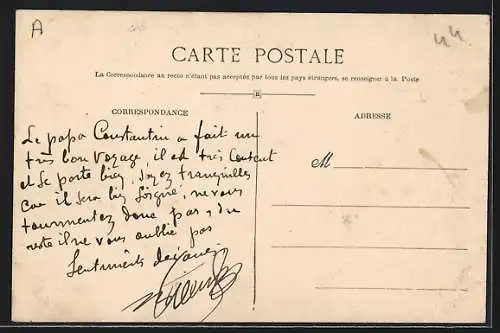 A
44
CARTE POSTALE
La Correspondance au recto n'étant pas acceptée par tous les pays étrangers, se renseigner à la Poste
R
CORRESPONDANCE
ADRESSE
M
Le papa Constantin a fait un
très bon voyage, il est très content
et se porte bien, soyez tranquilles
car il sera bien soigné, ne vous
tourmentez donc pas, du
reste il ne vous oublie pas
Sentiments